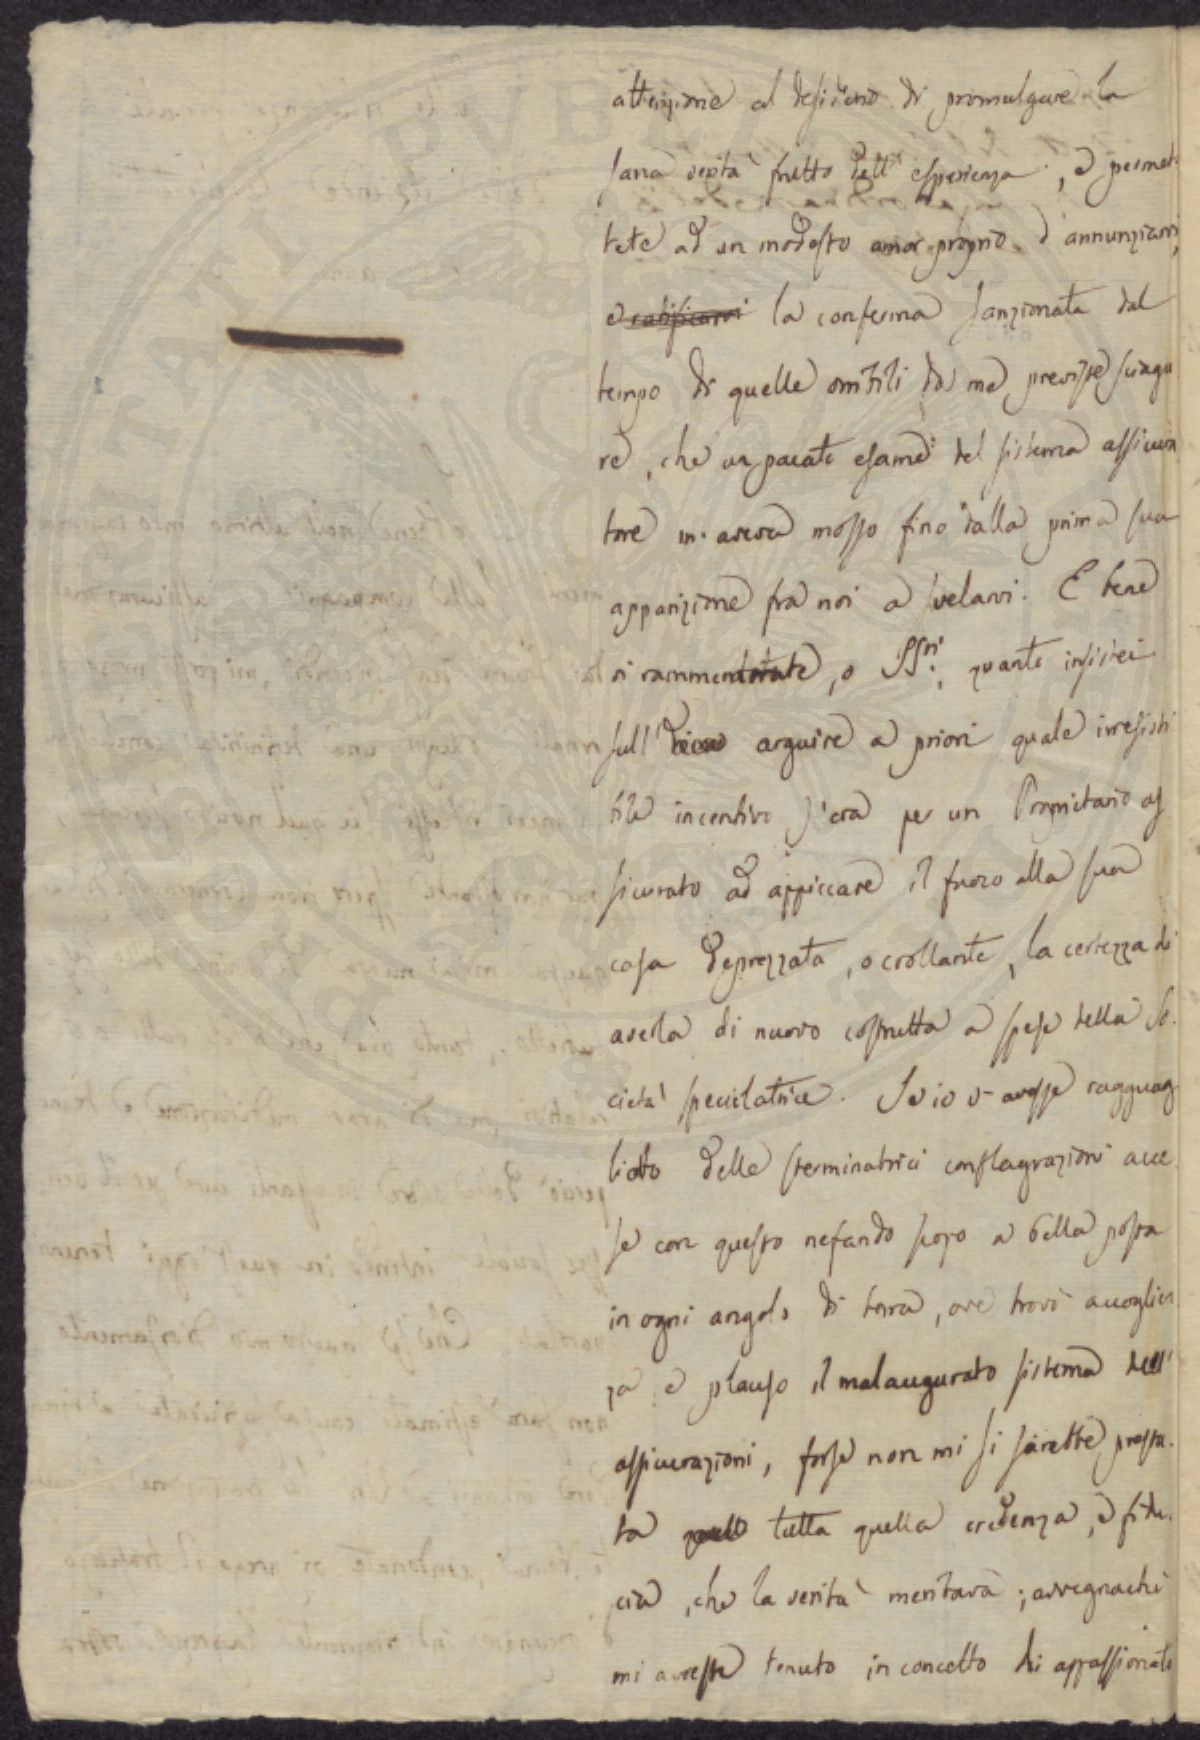 attenzione al desiderio di promulgare la
sana verità frutto dell' esperienza, e permet-
tete ad un modesto amor proprio d'annunziarvi,
e ratificarvi la conferma sanzionata dal
tempo di quelle orribili da me previste sciagu
re, che un pacato esame del sistema assicura
tore m'aveva mosso fino dalla prima sua
apparizione fra noi a svelarvi. E bene
vi rammentate, o SSri, quanto insistei
sull' arguire a priori quale irresisti
bile incentivo s'era per un Proprietario as
sicurato ad appiccare il fuoco alla sua
casa deprezzata, o crollante, la certezza di
averla di nuovo costrutta a spese della So.
cietà speculatrice. Se io v'avessi ragguag
liato delle sterminatrici conflagrazioni acce
se con questo nefando scopo a bella posta
in ogni angolo di terra, ove trovò accoglien
za e plauso il malaugurato sistema dell'
assicurazioni, forse non mi si sarebbe presta.
ta tutta quella credenza, e fidu.
cia, che la verità meritava; avvegnachè
mi avreste tenuto in concetto di appassionato